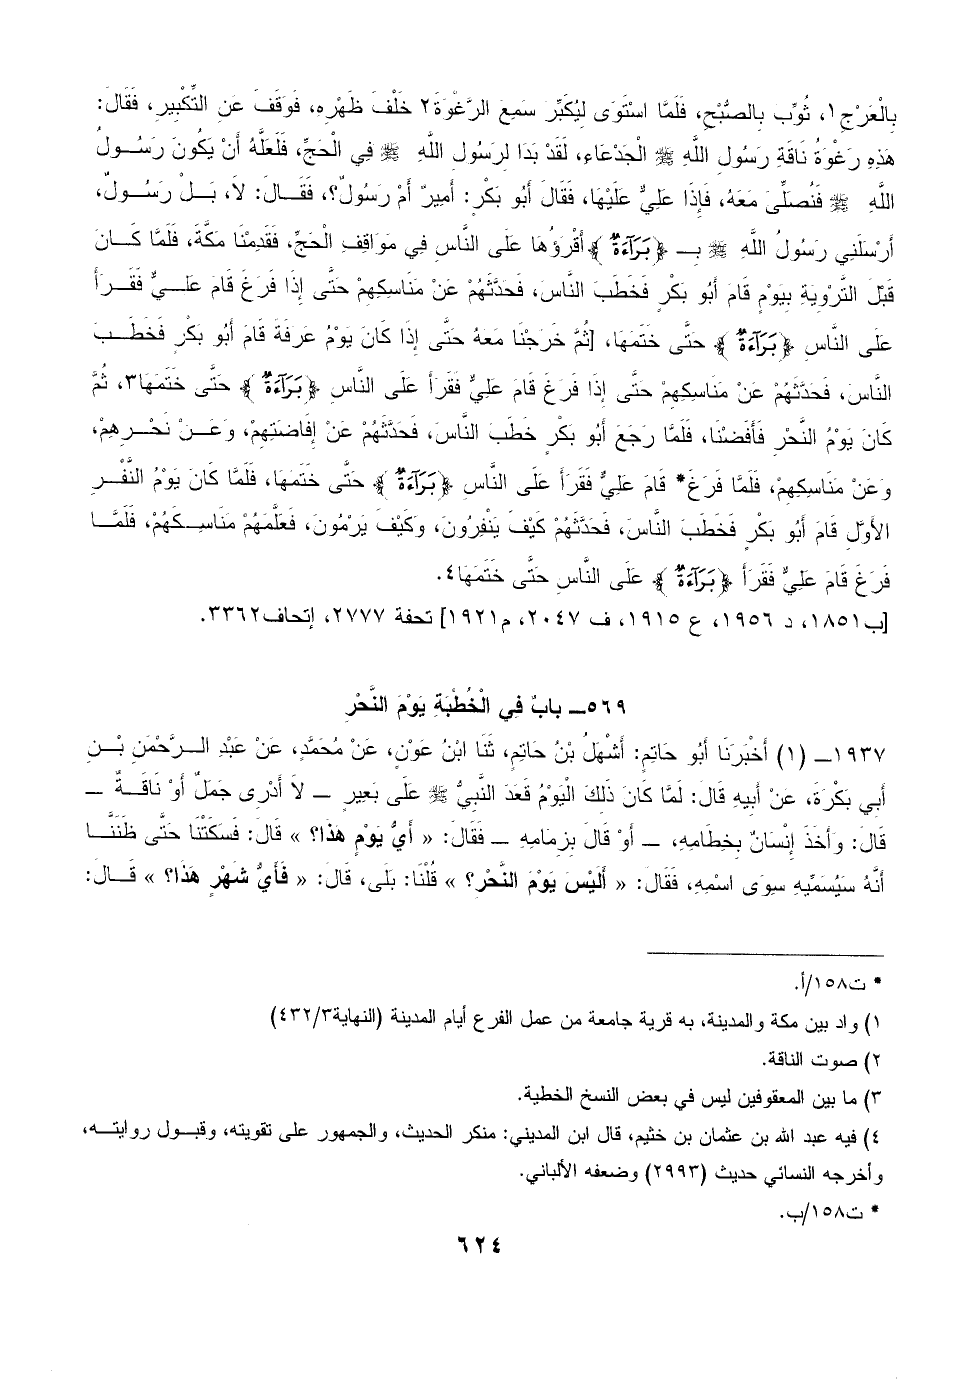 بِالْعَرْجِ١، ثُوِّبَ بِالصُّبْحِ، فَلَمَّا اسْتَوَى لِيُكَبِّرَ سَمِعَ الرَّغْوَةَ٢ خَلْفَ ظَهْرِهِ، فَوَقَفَ عَنِ التَّكْبِيرِ، فَقَالَ:
هَذِهِ رَغْوَةُ نَاقَةِ رَسُولِ اللَّهِ ﷺ الْجَدْعَاءِ، لَقَدْ بَدَا لِرَسُولِ اللَّهِ ﷺ فِي الْحَجِّ، فَلَعَلَّهُ أَنْ يَكُونَ رَسُـولُ
اللَّهِ ﷺ فَنُصَلِّىَ مَعَهُ، فَإِذَا عَلِيٌّ عَلَيْهَا، فَقَالَ أَبُو بَكْرٍ: أَمِيرٌ أَمْ رَسُولٌ؟، فَقَـالَ: لاَ، بَـلْ رَسُـولٌ،
أَرْسَلَنِي رَسُولُ اللَّهِ ﷺ بِـ ﴿بَرَآءَةٌ﴾ أَقْرَؤُهَا عَلَى النَّاسِ فِي مَوَاقِفِ الْحَجِّ، فَقَدِمْنَا مَكَّةَ، فَلَمَّا كَـانَ
قَبْلَ التَّرْوِيَةِ بِيَوْمٍ قَامَ أَبُو بَكْرٍ فَخَطَبَ النَّاسَ، فَحَدَّثَهُمْ عَنْ مَنَاسِكِهِمْ حَتَّى إِذَا فَرَغَ قَامَ عَلِـيٌّ فَقَـرَأَ
عَلَى النَّاسِ ﴿بَرَآءَةٌ﴾ حَتَّى خَتَمَهَا، [ثُمَّ خَرَجْنَا مَعَهُ حَتَّى إِذَا كَانَ يَوْمُ عَرَفَةَ قَامَ أَبُو بَكْرٍ فَخَطَـبَ
النَّاسَ، فَحَدَّثَهُمْ عَنْ مَنَاسِكِهِمْ حَتَّى إِذَا فَرَغَ قَامَ عَلِيٌّ فَقَرَأَ عَلَى النَّاسِ ﴿بَرَآءَةٌ﴾ حَتَّى خَتَمَهَا٣، ثُمَّ
كَانَ يَوْمُ النَّحْرِ فَأَفَضْنَا، فَلَمَّا رَجَعَ أَبُو بَكْرٍ خَطَبَ النَّاسَ، فَحَدَّثَهُمْ عَنْ إِفَاضَتِهِمْ، وَعَـنْ نَحْرِهِمْ،
وَعَنْ مَنَاسِكِهِمْ، فَلَمَّا فَرَغَ* قَامَ عَلِيٌّ فَقَرَأَ عَلَى النَّاسِ ﴿بَرَآءَةٌ﴾ حَتَّى خَتَمَهَا، فَلَمَّا كَانَ يَوْمُ النَّفْـرِ
الأَوَّلِ قَامَ أَبُو بَكْرٍ فَخَطَبَ النَّاسَ، فَحَدَّثَهُمْ كَيْفَ يَنْفِرُونَ، وَكَيْفَ يَرْمُونَ، فَعَلَّمَهُمْ مَنَاسِـكَهُمْ، فَلَمَّـا
فَرَغَ قَامَ عَلِيٌّ فَقَرَأَ ﴿بَرَآءَةٌ﴾ عَلَى النَّاسِ حَتَّى خَتَمَهَا٤.
[ب١٨٥١، د ١٩٥٦، ع ١٩١٥، ف ٢٠٤٧، م١٩٢١] تحفة ٢٧٧٧، إتحاف٣٣٦٢.
٥٦٩ـ بابٌ فِي الْخُطْبَةِ يَوْمَ النَّحْرِ
١٩٣٧ـ (١) أَخْبَرَنَا أَبُو حَاتِمٍ: أَشْهَلُ بْنُ حَاتِمٍ، ثَنَا ابْنُ عَوْنٍ، عَنْ مُحَمَّدٍ، عَنْ عَبْدِ الـرَّحْمَنِ بْـنِ
أَبِي بَكْرَةَ، عَنْ أَبِيهِ قَالَ: لَمَّا كَانَ ذَلِكَ الْيَوْمُ قَعَدَ النَّبِيُّ ﷺ عَلَى بَعِيرٍ ـ لاَ أَدْرِى جَمَلٌ أَوْ نَاقَـةٌ ـ
قَالَ: وَأَخَذَ إِنْسَانٌ بِخِطَامِهِ، ـ أَوْ قَالَ بِزِمَامِهِ ـ فَقَالَ: « أَيُّ يَوْمٍ هَذَا؟ » قَالَ: فَسَكَتْنَا حَتَّى ظَنَنَّـا
أَنَّهُ سَيُسَمِّيهِ سِوَى اسْمِهِ، فَقَالَ: « أَلَيْسَ يَوْمَ النَّحْرِ؟ » قُلْنَا: بَلَى، قَالَ: « فَأَيُّ شَهْرٍ هَذَا؟ » قَـالَ:
* ت١٥٨/أ.
١) واد بين مكة والمدينة، به قرية جامعة من عمل الفرع أيام المدينة (النهاية٤٣٢/٣)
٢) صوت الناقة.
٣) ما بين المعقوفين ليس في بعض النسخ الخطية.
٤) فيه عبد الله بن عثمان بن خثيم، قال ابن المديني: منكر الحديث، والجمهور على تقويته، وقبـول روايتـه،
وأخرجه النسائي حديث (٢٩٩٣) وضعفه الألباني.
* ت١٥٨/ب.
٦٢٤